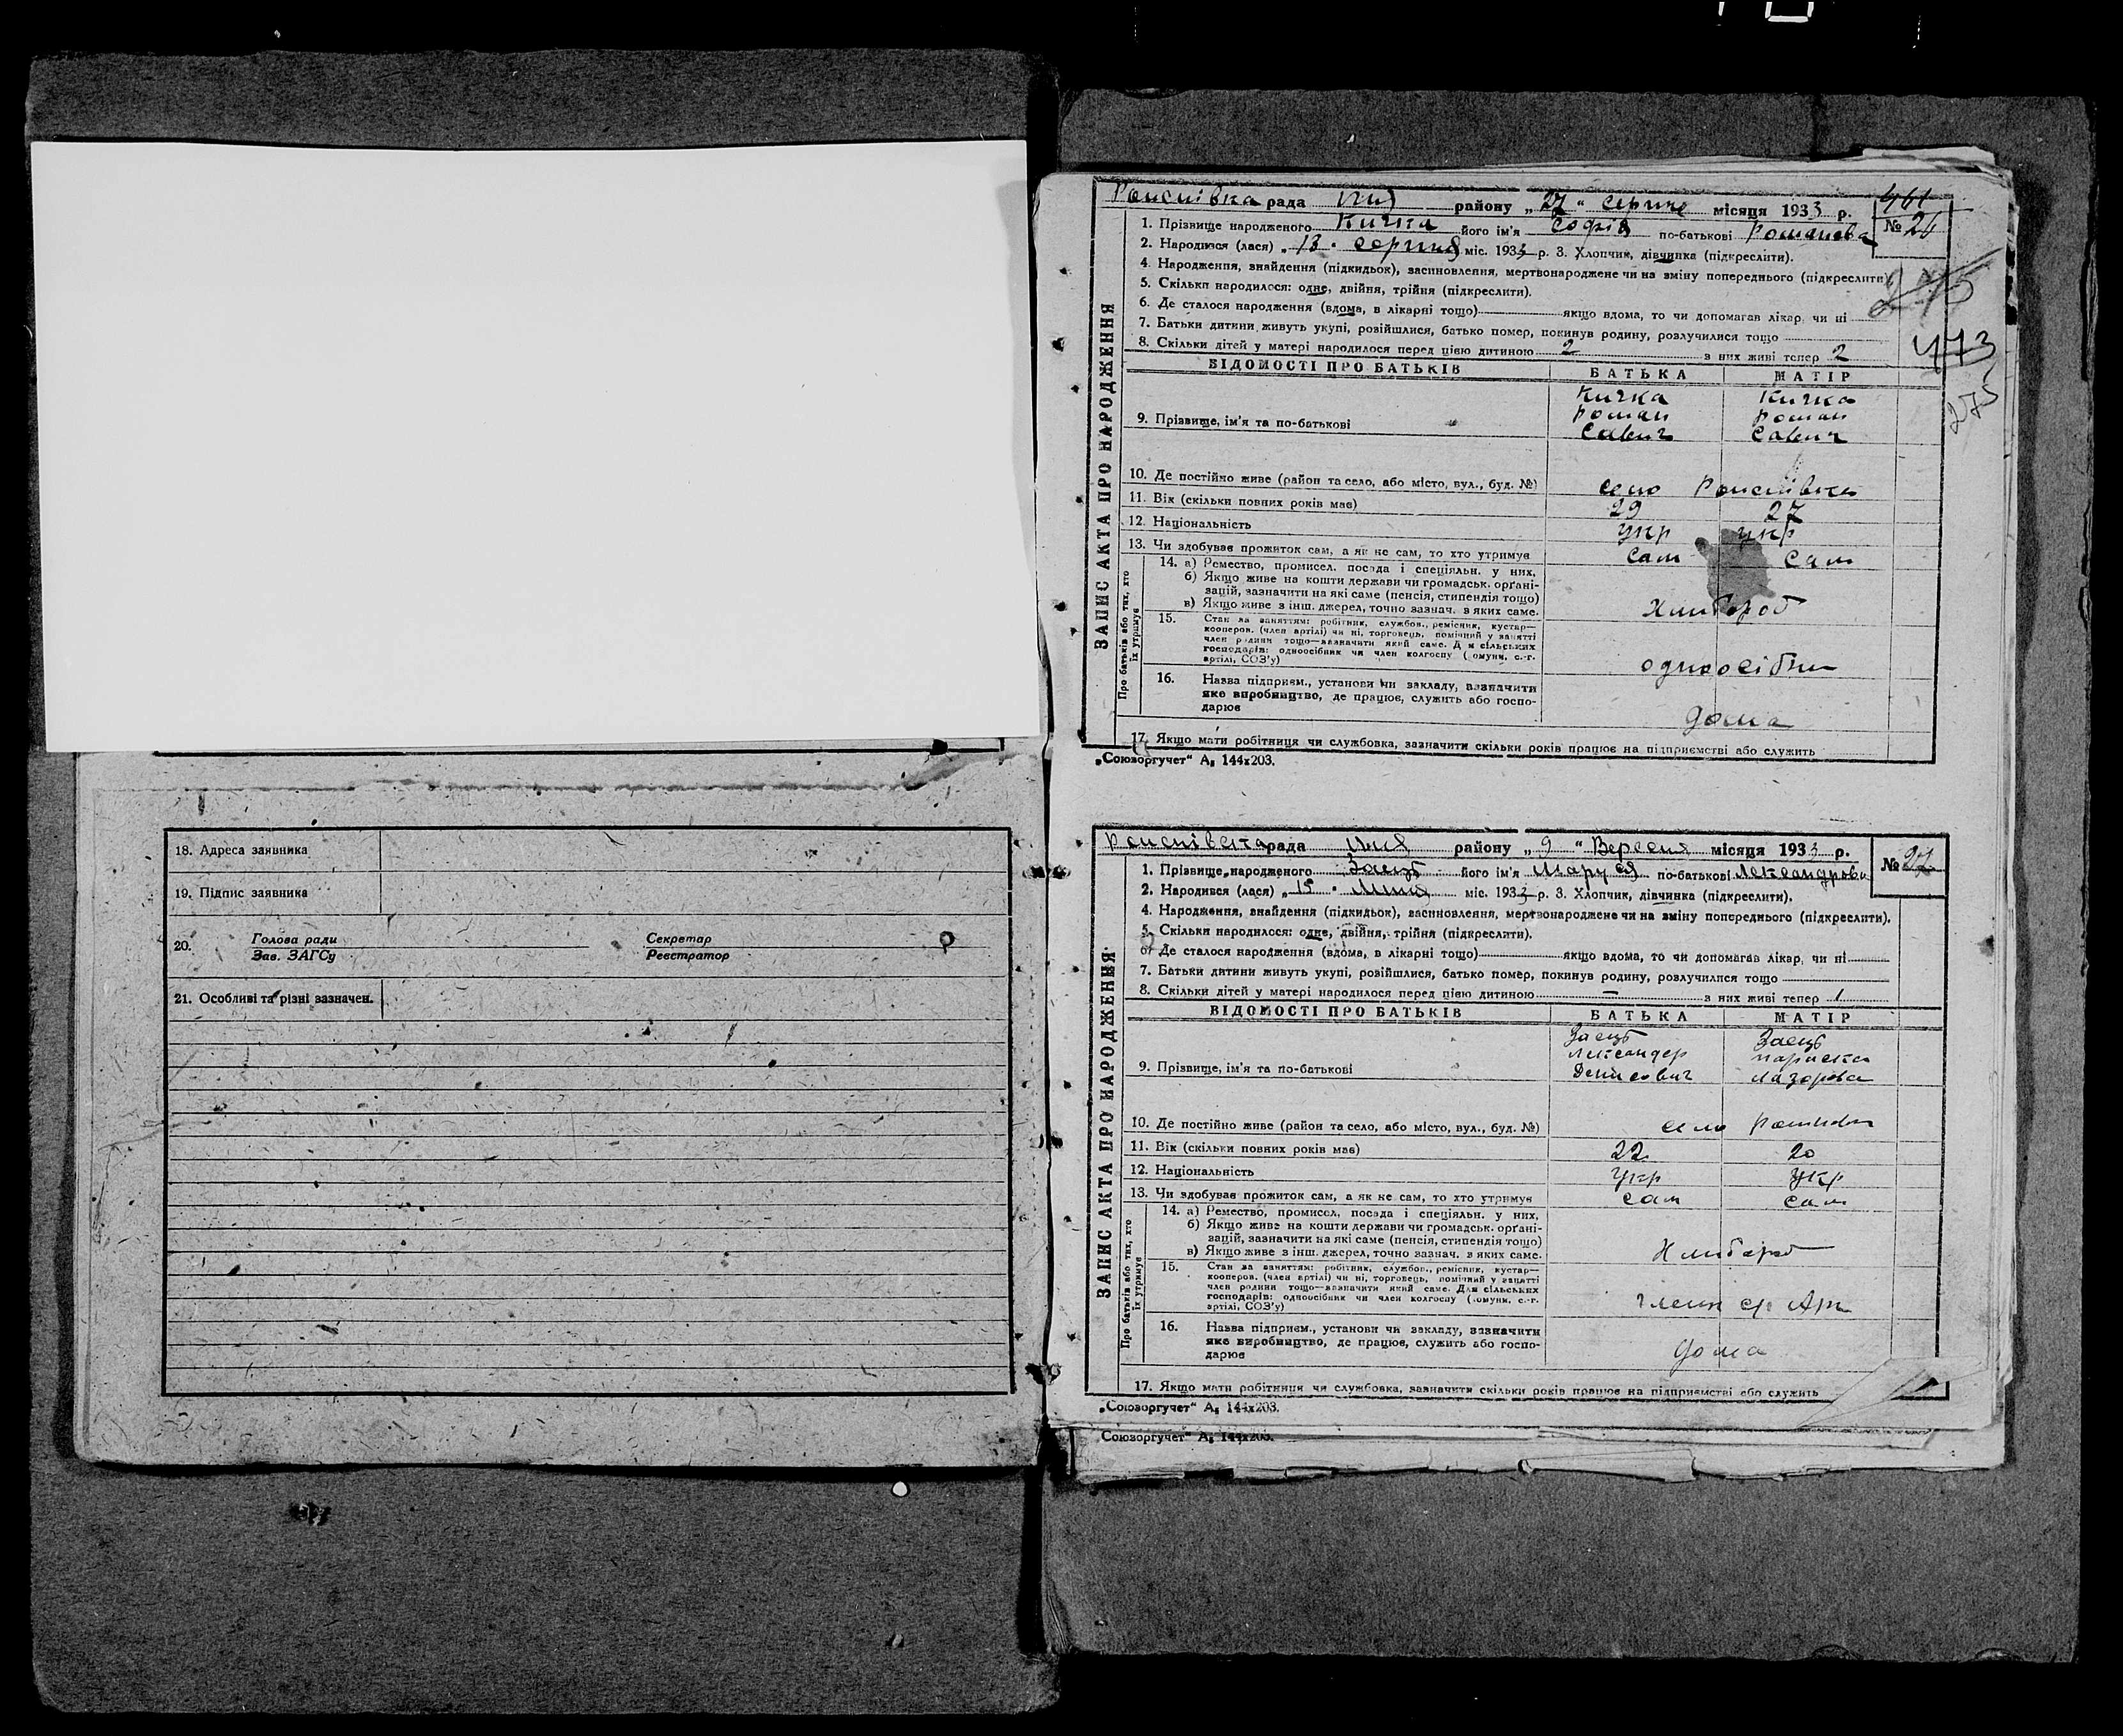 18. Адреса заявника
19. Підпис заявника
20. Голова ради Секретар
Зав. ЗАГСу Реєстратор
21. Особливі та різні зазначен.
рада району „27“ серпня місяця 1933 р.
461
№ 26
ЗАПИС АКТА ПРО НАРОДЖЕННЯ
1. Прізвище народженого Кичка його ім'я Софія по-батькові Романова
2. Народився (лася) „13 • серпня міс. 1933 р. 3. Хлопчик, дівчинка (підкреслити).
4. Народження, знайдення (підкидьок), засиновлення, мертвонароджене чи на зміну попереднього (підкреслити).
5. Скільки народилося: одне, двійня, трійня (підкреслити).
6. Де сталося народження (вдома, в лікарні тощо) якщо вдома, то чи допомагав лікар, чи ні
7. Батьки дитини живуть укупі, розійшлися, батько помер, покинув родину, розлучилися тощо
8. Скільки дітей у матері народилося перед цією дитиною 2 з них живі тепер 2
473
275
ВІДОМОСТІ ПРО БАТЬКІВ БАТЬКА МАТІР
Кичка Кичка
9. Прізвище, ім'я та по-батькові Роман Роман
Савич Савич
10. Де постійно живе (район та село, або місто, вул., буд. №) село
11. Вік (скільки повних років має) 29 27
12. Національність укр укр
13. Чи здобуває прожиток сам, а як не сам, то хто утримує сам сам
Про батьків або тих, хто їх утримує
14. а) Ремество, промисел, посада і спеціяльн. у них,
б) Якщо живе на кошти держави чи громадськ. орґані-
зацій, зазначити на які саме (пенсія, стипендія тощо)
в) Якщо живе з інш. джерел, точно зазнач. з яких саме.
Хлибороб
15. Стан за заняттям: робітник, службов., ремісник, кустар—
кооперов. (член артілі) чи ні, торговець, помічний у занятті
член родини тощо—зазначити який саме. Для сільських
господарів: одноосібник чи член колгоспу (комуни, с.-г.
артілі, СОЗ'у)
16. Назва підприєм., установи чи закладу, зазначити
яке виробництво, де працює, служить або госпо-
дарює
дома
17. Якщо мати робітниця чи службовка, зазначити скільки років працює на підприємстві або служить
„Союзоргучет“ А₅ 144х203.
рада району „9“ Вересня місяця 1933 р.
№
ЗАПИС АКТА ПРО НАРОДЖЕННЯ
1. Прізвище народженого Заєць його ім'я Маруся по-батькові Лександрова
2. Народився (лася) „15 • міс. 1933 р. 3. Хлопчик, дівчинка (підкреслити).
4. Народження, знайдення (підкидьок), засиновлення, мертвонароджене чи на зміну попереднього (підкреслити).
5. Скільки народилося: одне, двійня, трійня (підкреслити).
6. Де сталося народження (вдома, в лікарні тощо) якщо вдома, то чи допомагав лікар, чи ні
7. Батьки дитини живуть укупі, розійшлися, батько помер, покинув родину, розлучилися тощо
8. Скільки дітей у матері народилося перед цією дитиною — з них живі тепер 1
ВІДОМОСТІ ПРО БАТЬКІВ БАТЬКА МАТІР
Заєць Заєць
9. Прізвище, ім'я та по-батькові Лександер Параска
Денисович Лазорова
10. Де постійно живе (район та село, або місто, вул., буд. №) село
11. Вік (скільки повних років має) 22 20
12. Національність укр укр
13. Чи здобуває прожиток сам, а як не сам, то хто утримує сам сам
Про батьків або тих, хто їх утримує
14. а) Ремество, промисел, посада і спеціяльн. у них,
б) Якщо живе на кошти держави чи громадськ. орґані-
зацій, зазначити на які саме (пенсія, стипендія тощо)
в) Якщо живе з інш. джерел, точно зазнач. з яких саме.
Хлибороб
15. Стан за заняттям: робітник, службов., ремісник, кустар—
кооперов. (член артілі) чи ні, торговець, помічний у занятті
член родини тощо—зазначити який саме. Для сільських
господарів: одноосібник чи член колгоспу (комуни, с.-г.
артілі, СОЗ'у)
член
16. Назва підприєм., установи чи закладу, зазначити
яке виробництво, де працює, служить або госпо-
дарює
дома
17. Якщо мати робітниця чи службовка, зазначити скільки років працює на підприємстві або служить
„Союзоргучет“ А₅ 144х203.
Союзоргучет“ А₅ 144х203.